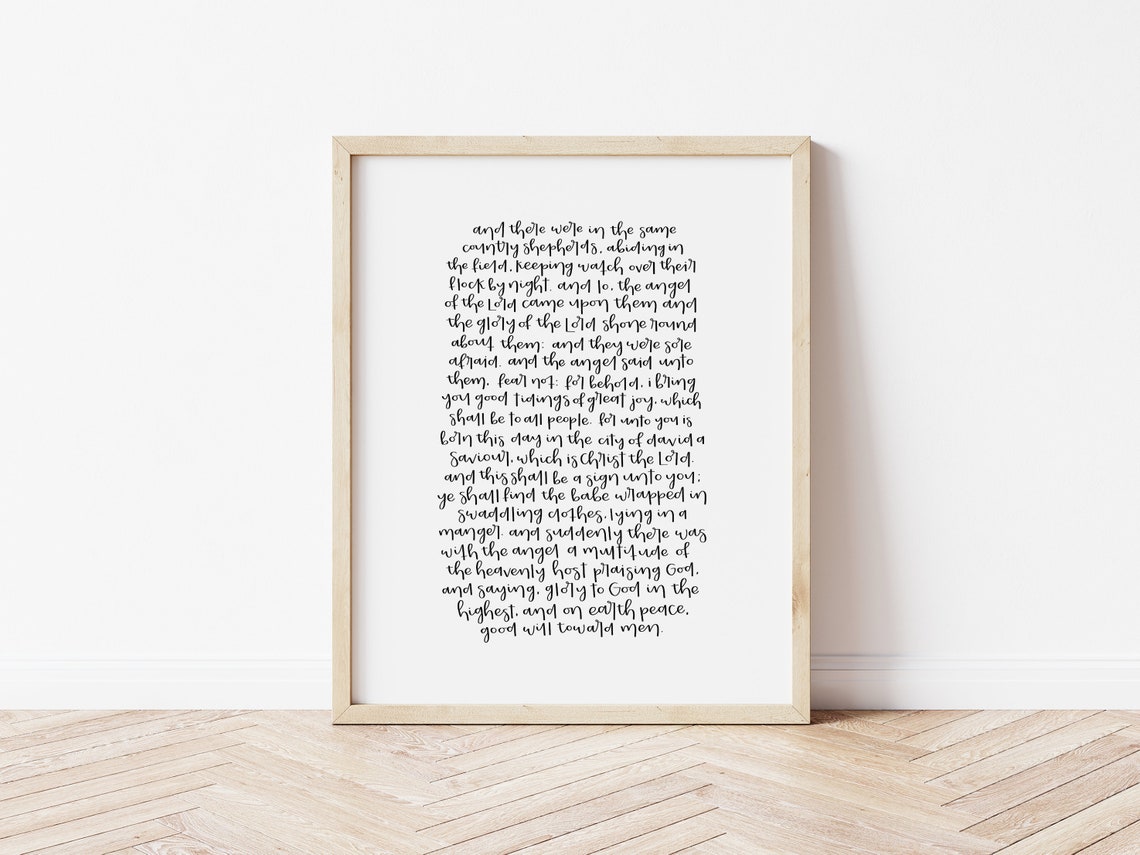 and there were in the same
country shepherds, abiding in
the field, keeping watch over their
flock by night. and lo, the angel
of the Lord came upon them and
the glory of the Lord shone round
about them: and they were sore
afraid. and the angel said unto
them, fear not: for behold, i bring
you good tidings of great joy, which
shall be to all people. for unto you is
born this day in the city of david a
saviour, which is Christ the Lord.
and this shall be a sign unto you;
ye shall find the babe wrapped in
swaddling clothes, lying in a
manger. and suddenly there was
with the angel a multitude of
the heavenly host praising God,
and saying, glory to God in the
highest, and on earth peace,
good will toward men.